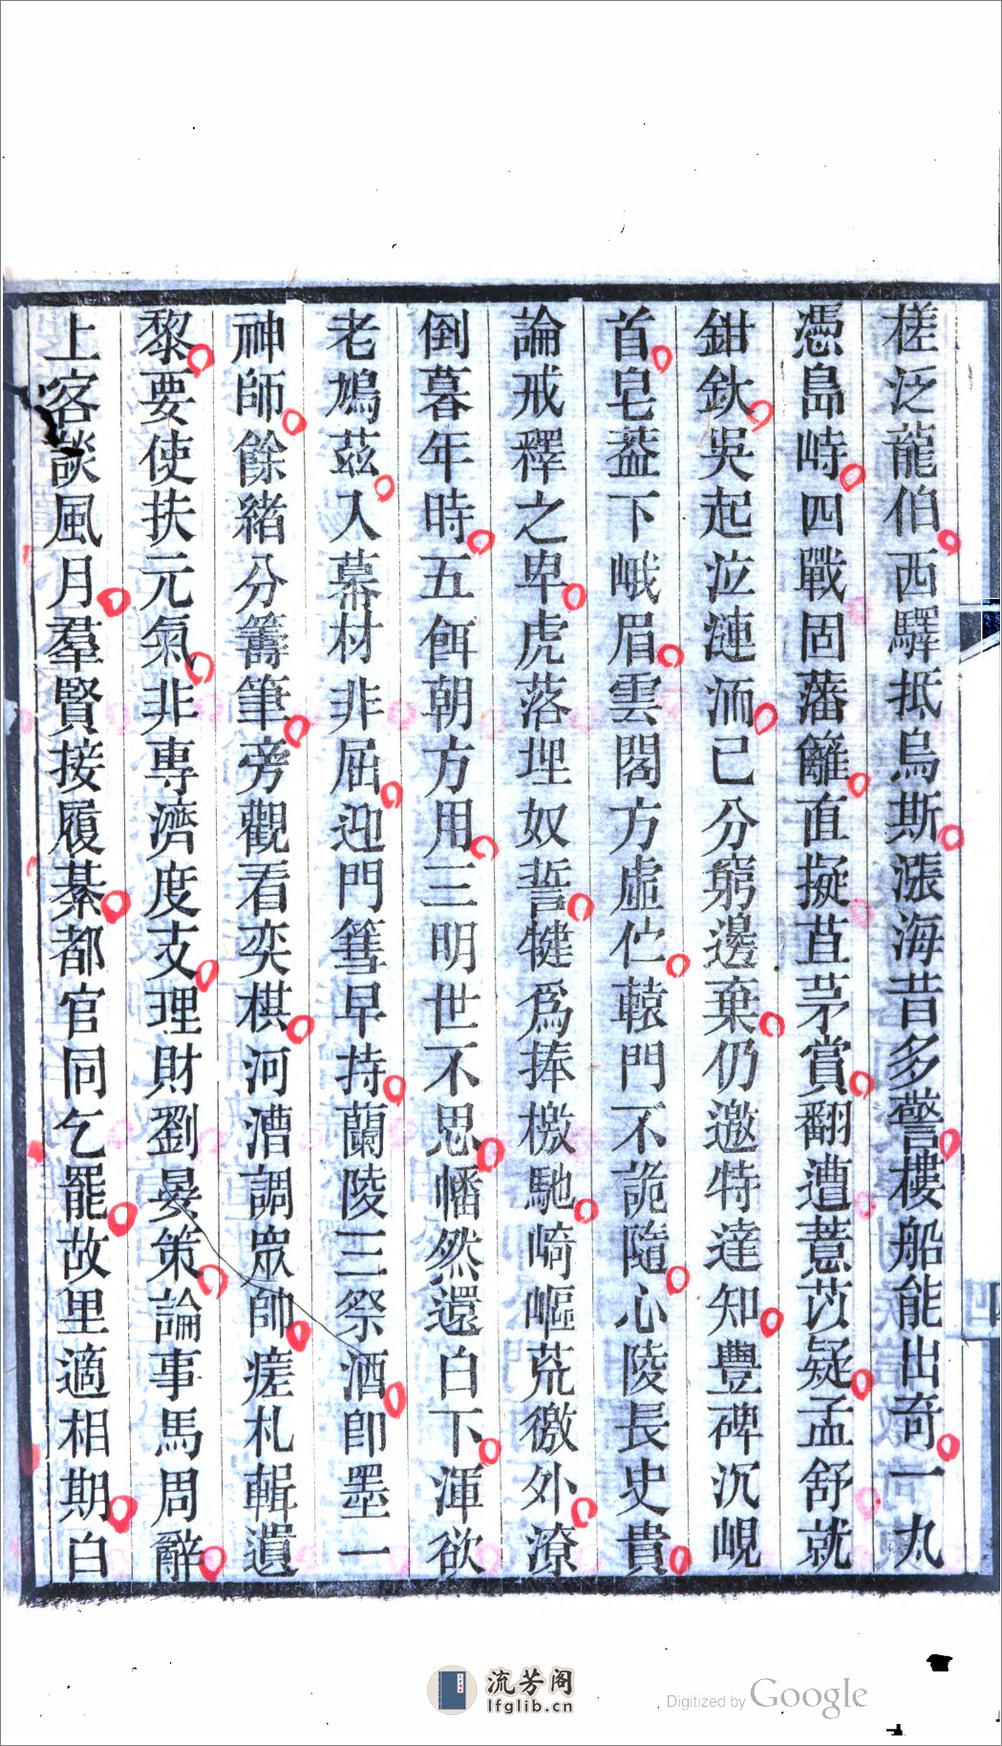 槎泛龍伯西驛抵烏斯漲海昔多警樓船能出奇一丸
憑島峙四戰固藩籬直擬苴茅賞翻遭薏苡疑孟舒就
鉗釱吳起泣漣洏已分窮邊棄仍邀特達知豐碑沉峴
首皂蓋下峨眉雲閣方虛伫轅門不詭隨心陵長史貴
論戒釋之卑虎落埋奴誓犍爲捧檄馳崎嶇荒徼外潦
倒暮年時五餌朝方用三明世不思幡然還白下渾欲
老鳩茲入幕材非屈迎門篲早持蘭陵三祭酒卽墨一
神師餘緒分籌筆旁觀看奕棋河漕調眾帥瘥札輯遺
黎要使扶元氣非專濟度支理財劉晏策論事馬周辭
上客談風月羣賢接履綦都官同乞罷故里適相期白
四
流芳阁
lfglib.cn
Digitized by Google